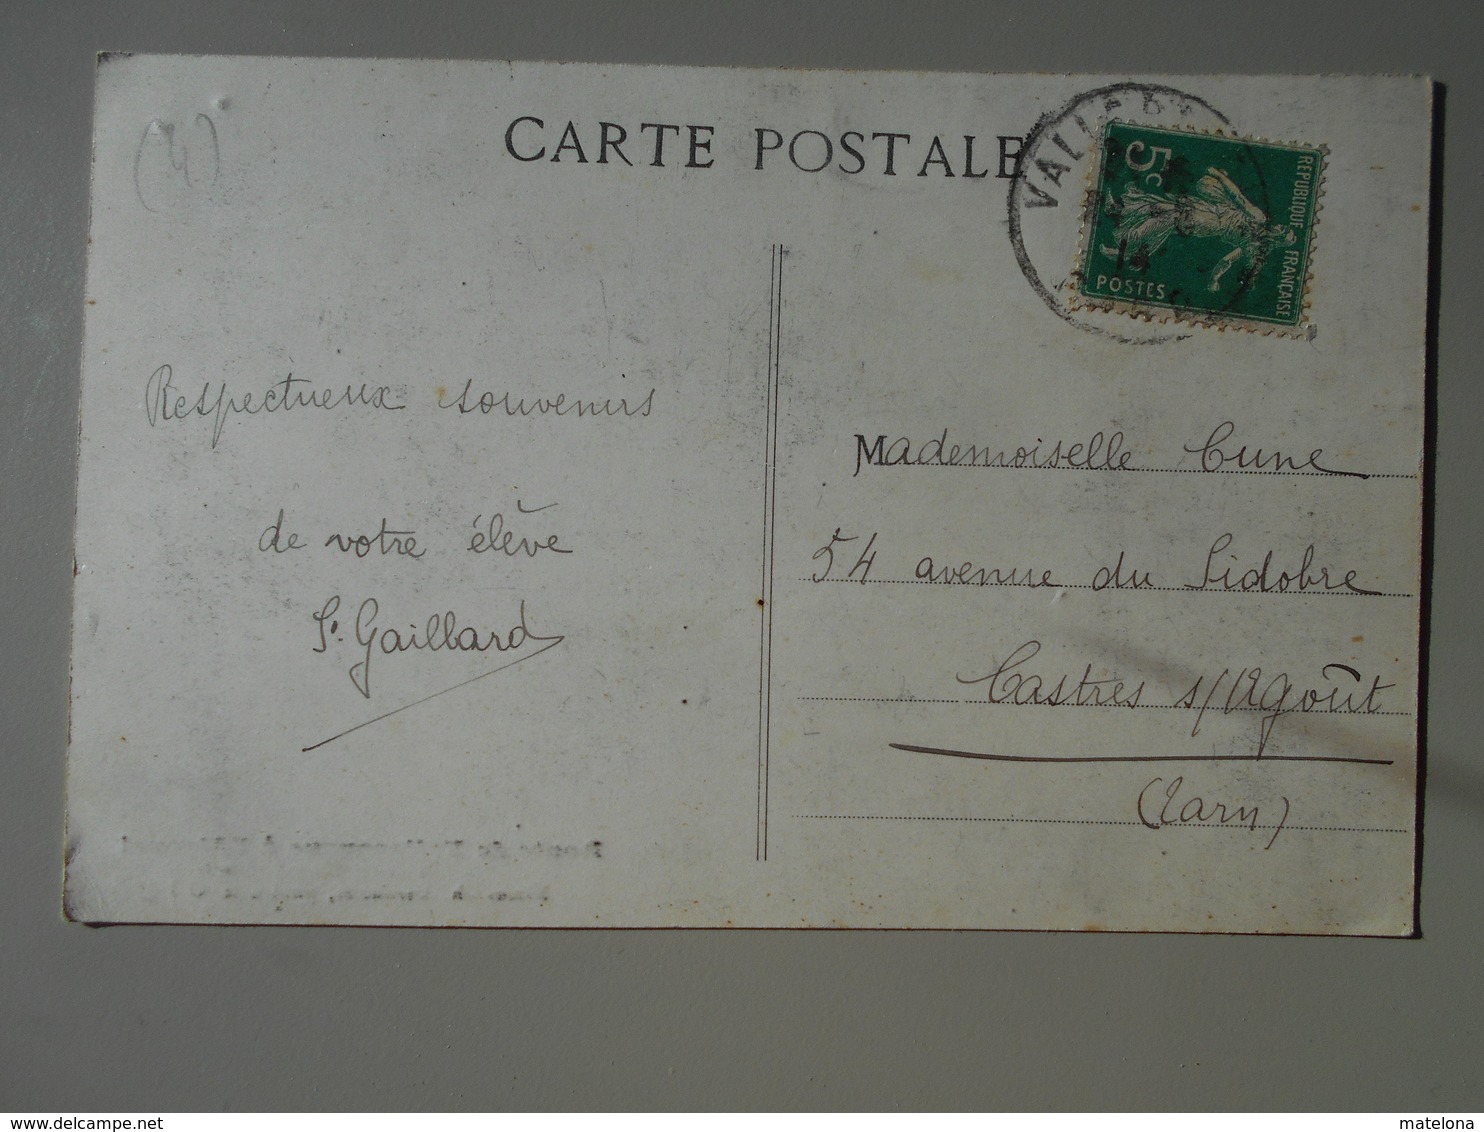 CARTE POSTALE
(4)
5c
REPUBLIQUE FRANÇAISE
POSTES
14
Respectueux souvenirs
de votre élève
S. Gaillard
Mademoiselle Cune
54 avenue du Sidobre
Castres s/Agoût
(Tarn)
www.delcampe.net
matelona